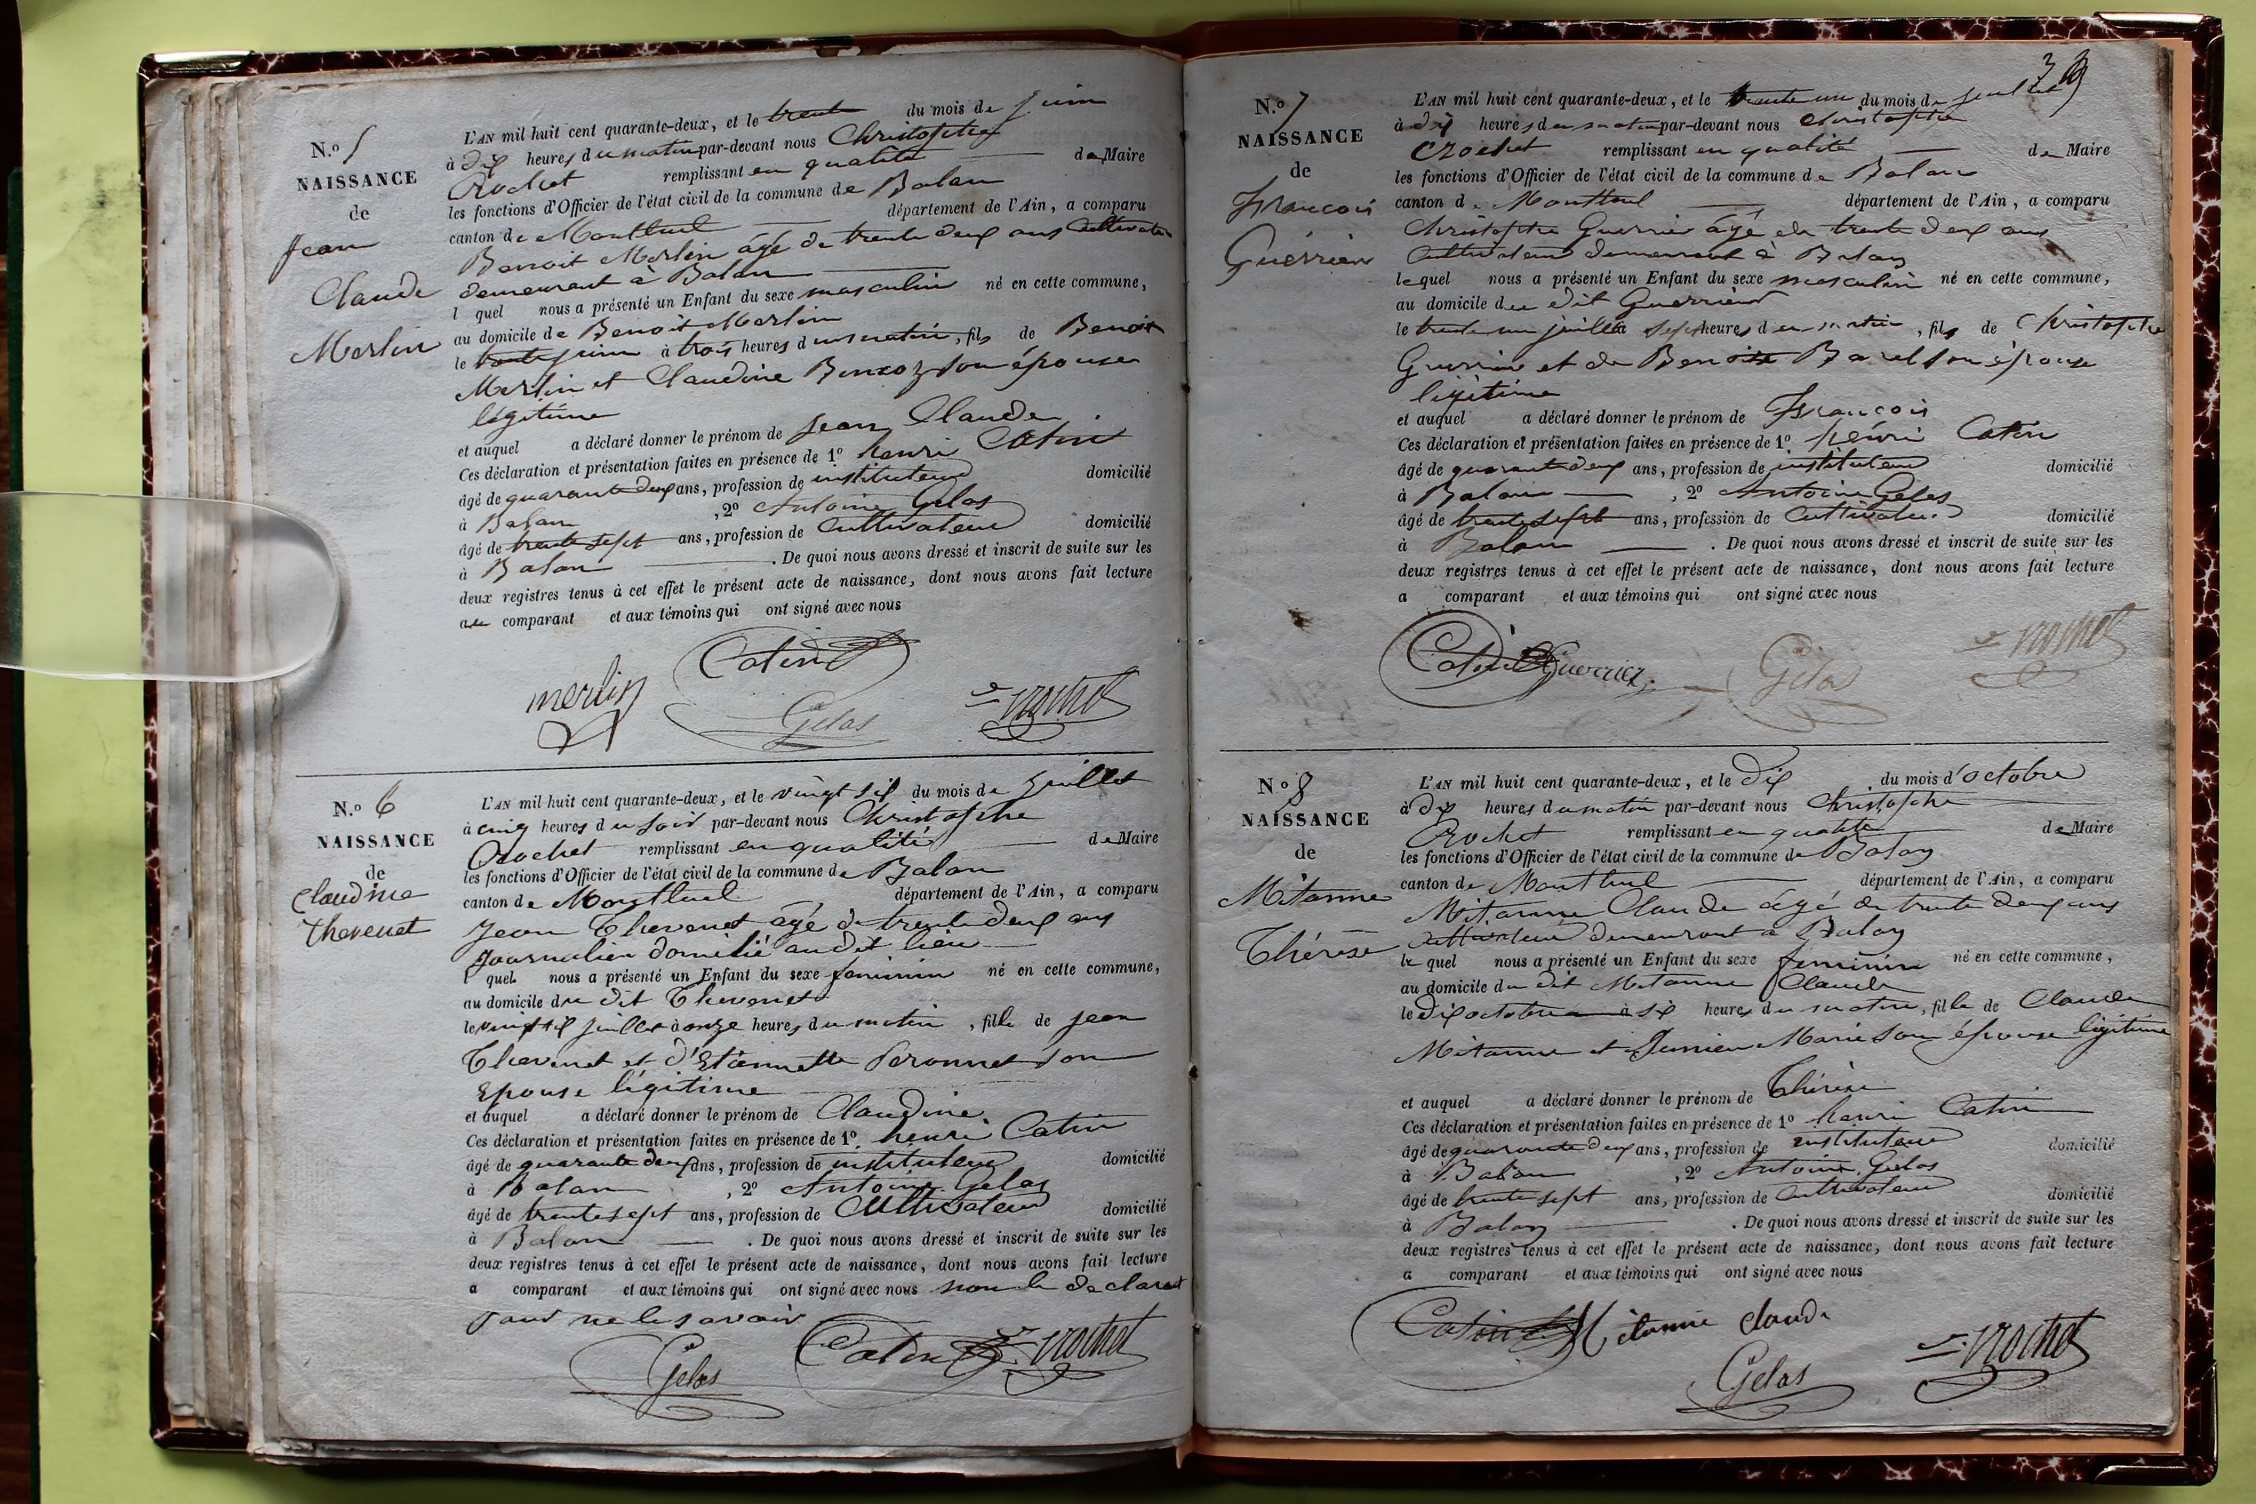 N.º 5
NAISSANCE
de
Jean
Claude
Merlin
L'AN mil huit cent quarante-deux, et le trente du mois de juin
à dix heures du matin par-devant nous Christophe
Crochet remplissant en qualité de Maire
les fonctions d'Officier de l'état civil de la commune de Balan
canton de Montluel département de l'Ain, a comparu
Benoit Merlin âgé de trente deux ans Cultivateur
demeurant à Balan
l quel nous a présenté un Enfant du sexe masculin né en cette commune,
au domicile de Benoit Merlin
le trente juin à trois heures du matin, fils de Benoit
Merlin et Claudine son épouse
légitime
et auquel a déclaré donner le prénom de Jean Claude
Ces déclaration et présentation faites en présence de 1º henri Catin
âgé de quarante deux ans, profession de instituteur domicilié
à Balan , 2º Antoine Gelas
âgé de trente sept ans, profession de Cultivateur domicilié
à Balan . De quoi nous avons dressé et inscrit de suite sur les
deux registres tenus à cet effet le présent acte de naissance, dont nous avons fait lecture
au comparant et aux témoins qui ont signé avec nous
merlin Catin Gelas Crochet
N.º 6
NAISSANCE
de
Claudine
thevenet
L'AN mil huit cent quarante-deux, et le vingt six du mois de Juillet
à cinq heures du soir par-devant nous Christophe
Crochet remplissant en qualité de Maire
les fonctions d'Officier de l'état civil de la commune de Balan
canton de Montluel département de l'Ain, a comparu
Jean Thevenet âgé de trente deux ans
Journalier domicilié audit lieu
l quel nous a présenté un Enfant du sexe feminin né en cette commune,
au domicile du dit Thevenet
le vingt six juillet à onze heures du matin, fille de jean
Thevenet et d'Etiennette Peronnet son
Epouse légitime
et auquel a déclaré donner le prénom de Claudine
Ces déclaration et présentation faites en présence de 1º henri Catin
âgé de quarante deux ans, profession de instituteur domicilié
à Balan , 2º Antoine Gelas
âgé de trente sept ans, profession de Cultivateur domicilié
à Balan . De quoi nous avons dressé et inscrit de suite sur les
deux registres tenus à cet effet le présent acte de naissance, dont nous avons fait lecture
a comparant et aux témoins qui ont signé avec nous non le declarant
pour ne le savoir
Gelas Catin Crochet
N.º 7
NAISSANCE
de
François
Guérrier
L'AN mil huit cent quarante-deux, et le trente un du mois de juillet
à dix heures du matin par-devant nous Christophe
Crochet remplissant en qualité de Maire
les fonctions d'Officier de l'état civil de la commune de Balan
canton de Montluel département de l'Ain, a comparu
Christophe Guerrier âgé de trente deux ans
Cultivateur demeurant à Balan
lequel nous a présenté un Enfant du sexe masculin né en cette commune,
au domicile du dit Guerrier
le trente un juillet à sept heures du matin, fils de Christophe
Guerrier et de Benoite Barel son épouse
légitime
et auquel a déclaré donner le prénom de François
Ces déclaration et présentation faites en présence de 1º henri Catin
âgé de quarante deux ans, profession de instituteur domicilié
à Balan , 2º Antoine Gelas
âgé de trente sept ans, profession de Cultivateur domicilié
à Balan . De quoi nous avons dressé et inscrit de suite sur les
deux registres tenus à cet effet le présent acte de naissance, dont nous avons fait lecture
a comparant et aux témoins qui ont signé avec nous
Catin Guerrier Gelas Crochet
Nº 8
NAISSANCE
de
Mitanne
Thérèse
L'AN mil huit cent quarante-deux, et le dix du mois d'octobre
à dix heures du matin par-devant nous Christophe
Crochet remplissant en qualité de Maire
les fonctions d'Officier de l'état civil de la commune de Balan
canton de Montluel département de l'Ain, a comparu
Mitanne Claude âgé de trente deux ans
Cultivateur demeurant à Balan
le quel nous a présenté un Enfant du sexe feminin né en cette commune,
au domicile du dit Mitanne Claude
le dix octobre à six heures du matin, fille de Claude
Mitanne et Marie son épouse légitime
et auquel a déclaré donner le prénom de Thérèse
Ces déclaration et présentation faites en présence de 1º henri Catin
âgé de quarante deux ans, profession de instituteur domicilié
à Balan , 2º Antoine Gelas
âgé de trente sept ans, profession de Cultivateur domicilié
à Balan . De quoi nous avons dressé et inscrit de suite sur les
deux registres tenus à cet effet le présent acte de naissance, dont nous avons fait lecture
a comparant et aux témoins qui ont signé avec nous
Catin Mitanne claude Gelas Crochet